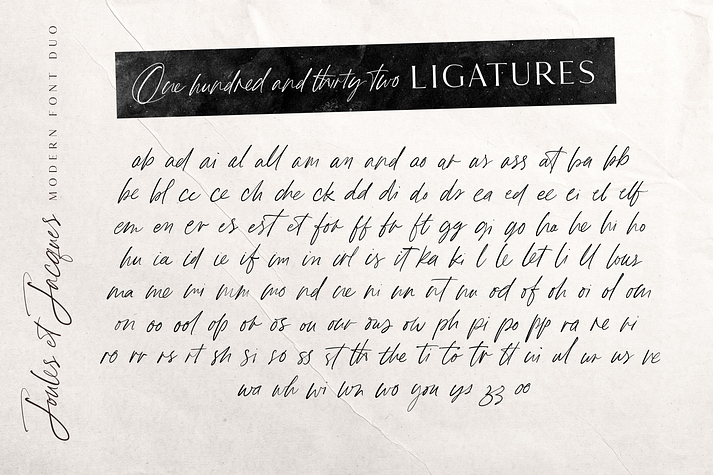 One hundred and thirty two LIGATURES
ab ad ai al all am an and ao ar as ass at ba bb
be bl cc ce ch che ck dd di do dr ea ed ee ei el elf
em en er es est et for ff fr ft gg gi go ha he hi ho
hu ia id ie if im in irl is it ka ki l le let li ll lous
ma me mi mm mo nd ne ni nn nt nu od of oh oi ol om
on oo ool op or os ou our ous ow ph pi po pp ra re ri
ro rr rs rt sh si so ss st th the ti to tr tt ui ul ur us ve
wa wh wi wn wo you ys zz oo
Joules et Jacques MODERN FONT DUO